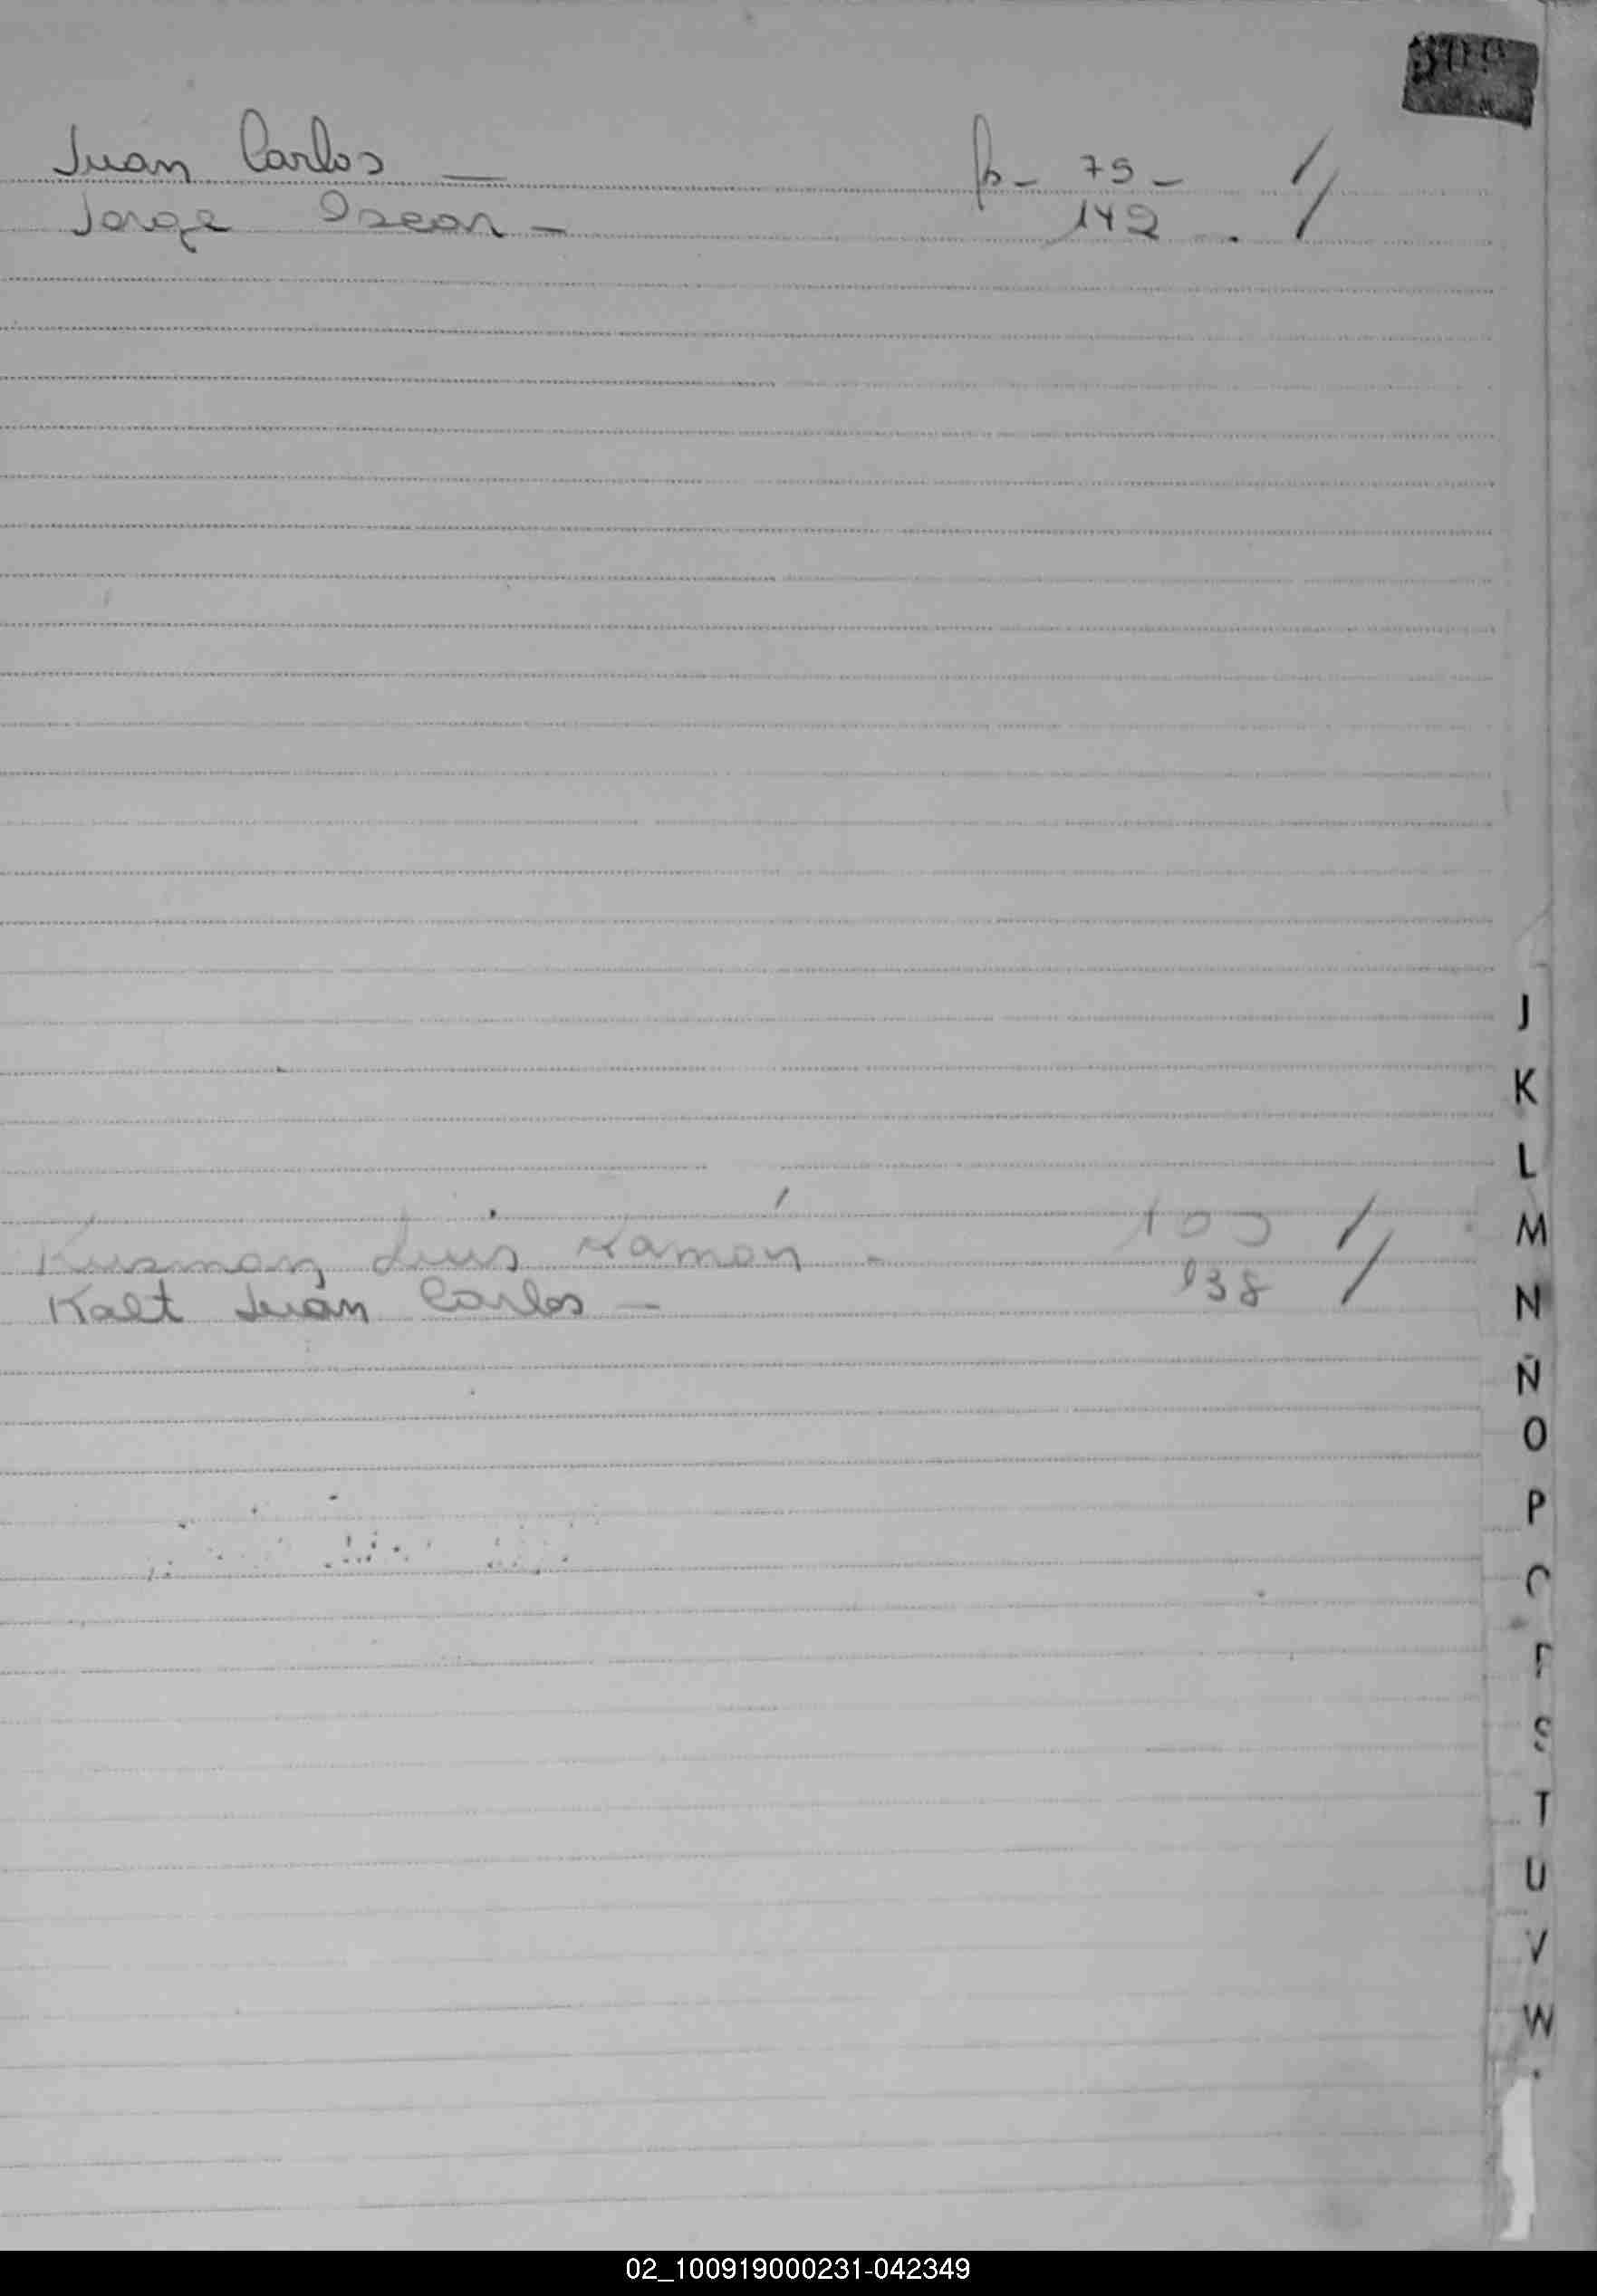 Juan Carlos — 75 -
Jorge Oscar - 142 .
J
K
L
Kusman Luis Ramón - 103
M
Kalt Juan Carlos - 138
N
Ñ
O
P
S
T
U
V
W
02_100919000231-042349